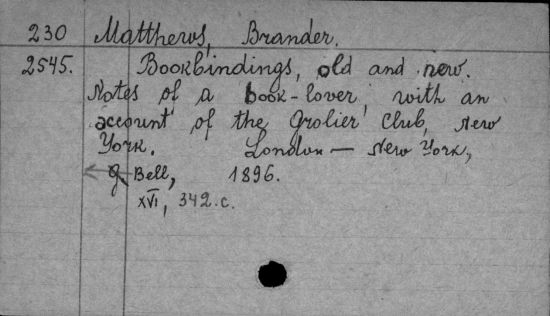 230 Matthews, Brander.
2545. Bookbindings, old and new.
Notes of a book-lover, with an
account of the Grolier Club, New
York. London — New York,
G. Bell, 1896.
XVI, 342.c.